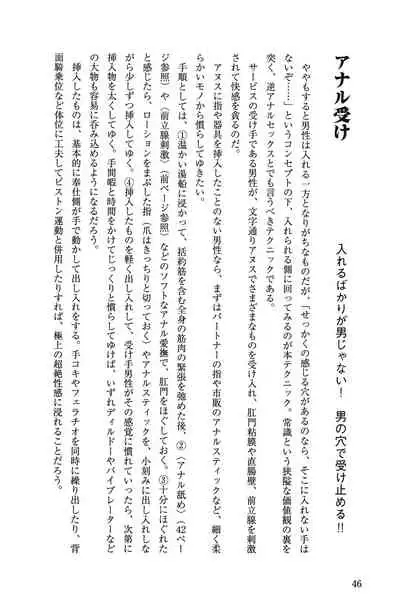 アナル受け
入れるばかりが男じゃない！　男の穴で受け止める!!
ややもすると男性は入れる一方となりがちなものだが、「せっかくの感じる穴があるのなら、そこに入れない手は
ないぞ……」というコンセプトの下、入れられる側に回ってみるのが本テクニック。常識という狭隘な価値観の裏を
突く、逆アナルセックスとでも言うべきテクニックである。
サービスの受け手である男性が、文字通りアヌスでさまざまなものを受け入れ、肛門粘膜や直腸壁、前立腺を刺激
されて快感を貪るのだ。
アヌスに指や器具を挿入したことのない男性なら、まずはパートナーの指や市販のアナルスティックなど、細く柔
らかいモノから慣らしてゆきたい。
手順としては、①温かい湯船に浸かって、括約筋を含む全身の筋肉の緊張を強めた後、②〈アナル舐め〉（42ペー
ジ参照）や〈前立腺刺激〉（前ページ参照）などのソフトなアナル愛撫で、肛門をほぐしておく。③十分にほぐれた
と感じたら、ローションをまぶした指（爪はきっちりと切っておく）やアナルスティックを、小刻みに出し入れしな
がら少しずつ挿入してゆく。④挿入したものを軽く出し入れして、受け手男性がその感覚に慣れていったら、次第に
挿入物を太くしてゆく。手間暇と時間をかけてじっくりと慣らしてゆけば、いずれディルドーやバイブレーターなど
の大物も容易に呑み込めるようになるだろう。
挿入したものは、基本的に奉仕側が手で動かして出し入れをする。手コキやフェラチオを同時に繰り出したり、背
面騎乗位など体位に工夫してピストン運動と併用したりすれば、極上の超絶性感に浸れることだろう。
46